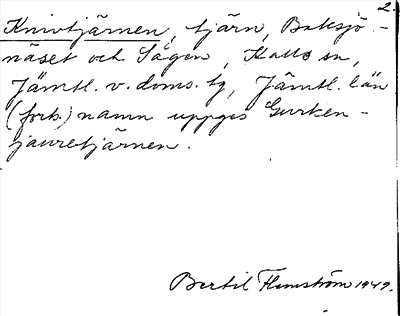 2.
Knivtjärnen, tjärn, Baksjö-
näset och Sågen, Kalls sn,
Jämtl. v. doms. tg, Jämtl. län
(forts.) namn uppges Gurken-
jauretjärnen.
Bertil Flemström 1949.